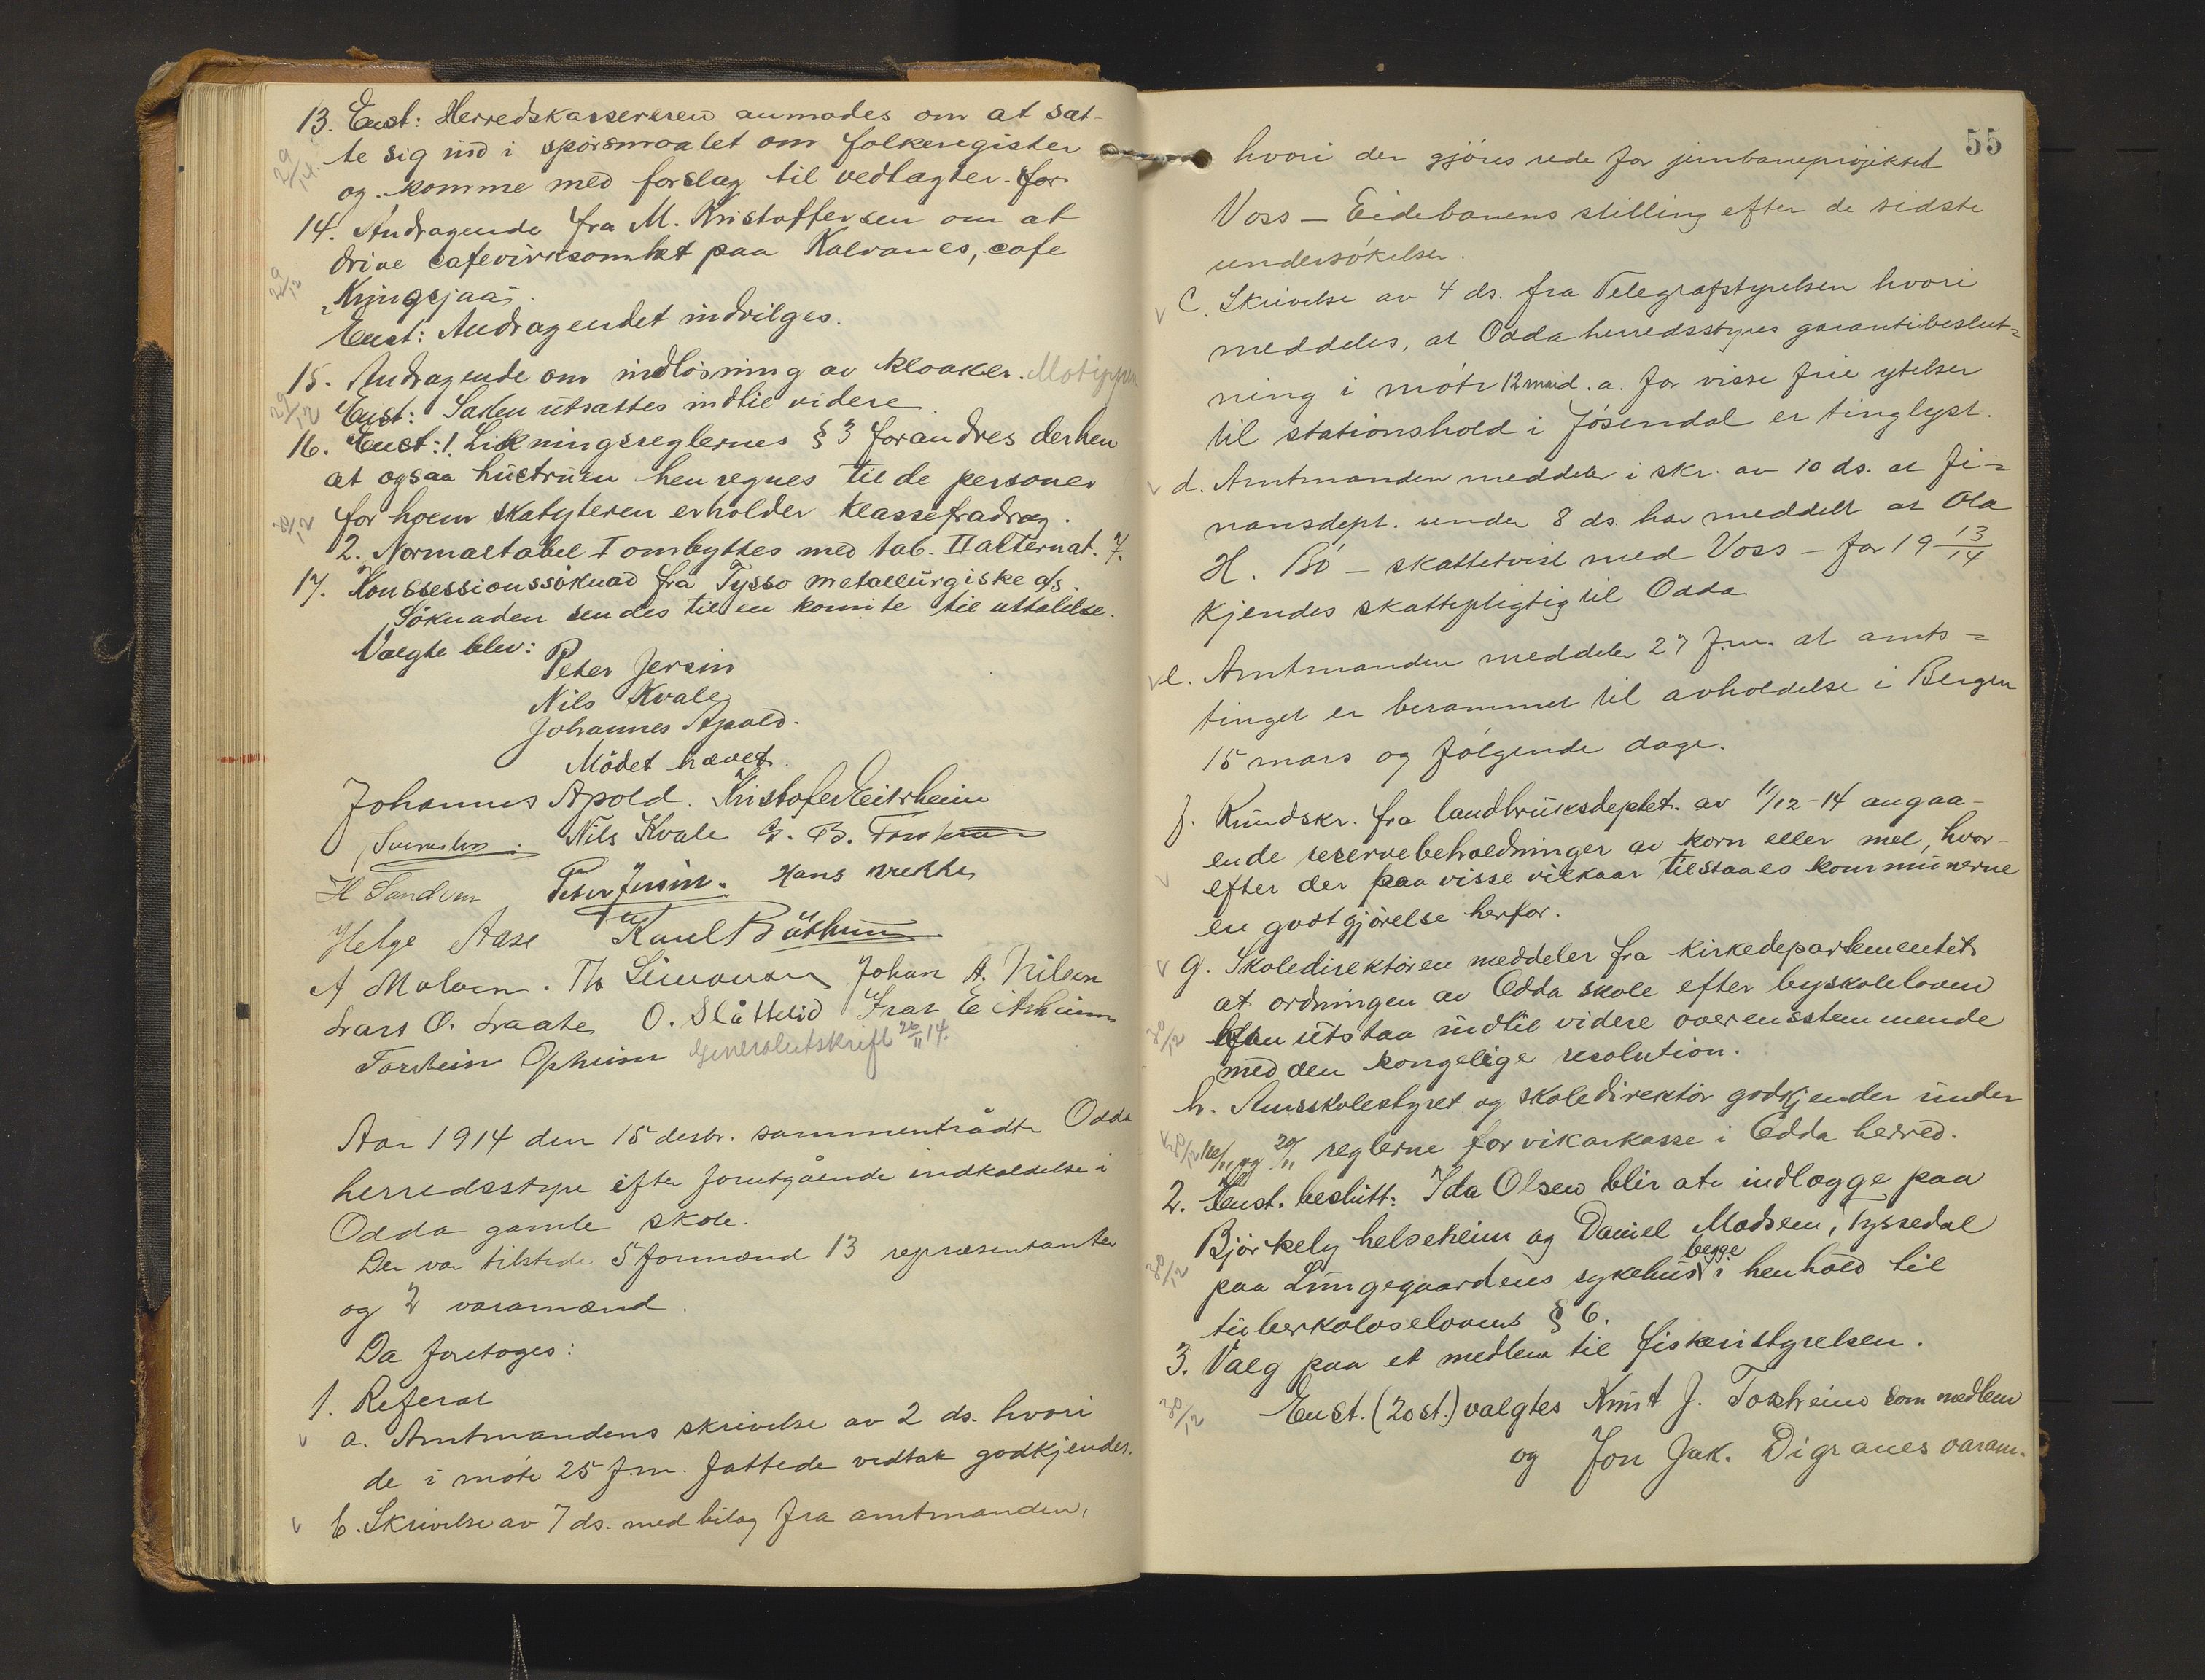 13. Enst: Herredskassereren anmodes om at sæt-
te sig ind i spörsmaalet om folkeregister
29/14.
og komme med forslag til vedtægter for
14. Andragende fra M. Kristoffersen om at
drive cafevirksomhet paa Kalvanes, cafe
29/12
"Kringsjaa".
Enst: Andragendet indvilges.
15. Andragende om indlösning av kloaker.
29/12
Enst: Saken utsættes indtil videre.
16. Enst: 1. Likningsreglernes § 3 forandres derhen
at ogsaa hustruen henregnes til de personer
30/12
for hvem skatyteren erholder klassefradrag.
2. Normaltabel I ombyttes med tab. II alternat. 7.
17. Konsessionssöknad fra Tysso metallurgiske a/s.
Söknaden sendes til en komite til uttalelse.
Valgte blev:
Peter Jersin
Nils Kvale
Johannes Apold.
Mödet hævet.
Johannes Apold. Kristofer Eitrheim
Nils Kvale G. B.
H Tandem Peter Jersin. Hans
Helge Aase Karl
A Molven. Th Simonsen Johan A. Nilsen
Lars O. Laate O. Slåttelid Ivar Eitrheim
Torstein Opheim Generalutskrift 26/11 14.
Aar 1914 den 15 desbr. sammentrådte Odda
herredsstyre efter forutgående indkaldelse i
Odda gamle skole.
Der var tilstede 5 formænd 13 repræsentanter
og 2 varamænd.
Da foretoges:
1. Referat
a. Amtmandens skrivelse av 2 ds. hvori
de i möte 25 f.m. fattede vedtak godkjendes.
b. Skrivelse av 7 ds. med bilag fra amtmanden,
55
hvori der gjöres rede for jernbaneprojektet
Voss – Eidebanens stilling efter de sidste
undersökelser.
c. Skrivelse av 4 ds. fra Telegrafstyrelsen hvori
meddeles, at Odda herredsstyres garantibeslut=
ning i möte 12 mai d. a. for visse frie ytelser
til stationshold i Jösendal er tinglyst.
d. Amtmanden meddeler i skr. av 10 ds. at Fi=
nansdept. under 8 ds. har meddelt at Ola
H. Bö – skattetvist med Voss – for 19 13/14
kjendes skattepligtig til Odda
e. Amtmanden meddeler 27 f.m. at amts=
tinget er berammet til avholdelse i Bergen
15 mars og fölgende dage.
f. Rundskr. fra landbruksdeptet. av 11/12-14 angaa-
ende reservebeholdninger av korn eller mel, hvor-
efter der paa visse vilkaar tilstaaes kommunerne
en godtgjörelse herfor.
g. Skoledirektören meddeler fra kirkedepartementet
at ordningen av Odda skole efter byskoleloven
30/12
kan utstaa indtil videre overensstemmende
med den kongelige resolution.
h. Amsskolestyret og skoledirektör godkjender under
30/12
16/11 og 20/11 reglerne for vikarkasse i Odda herred.
2. Enst. beslutt: Ida Olsen blir at indlægge paa
Björkely helseheim og Daniel Madsen, Tyssedal
30/12
paa Lungegaardens sykehus begge i henhold til
tuberkoloselovens § 6.
3. Valg paa et medlem til fiskeristyrelsen.
30/12
Enst. (20 st.) valgtes Knut J. Tokheim som medlem
og Jon Jak. Digranes varam.